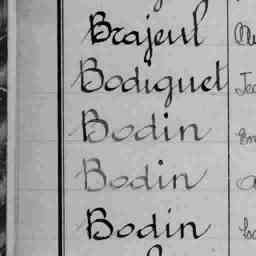 Brajeul
Bodiguet
Bodin
Bodin
Bodin